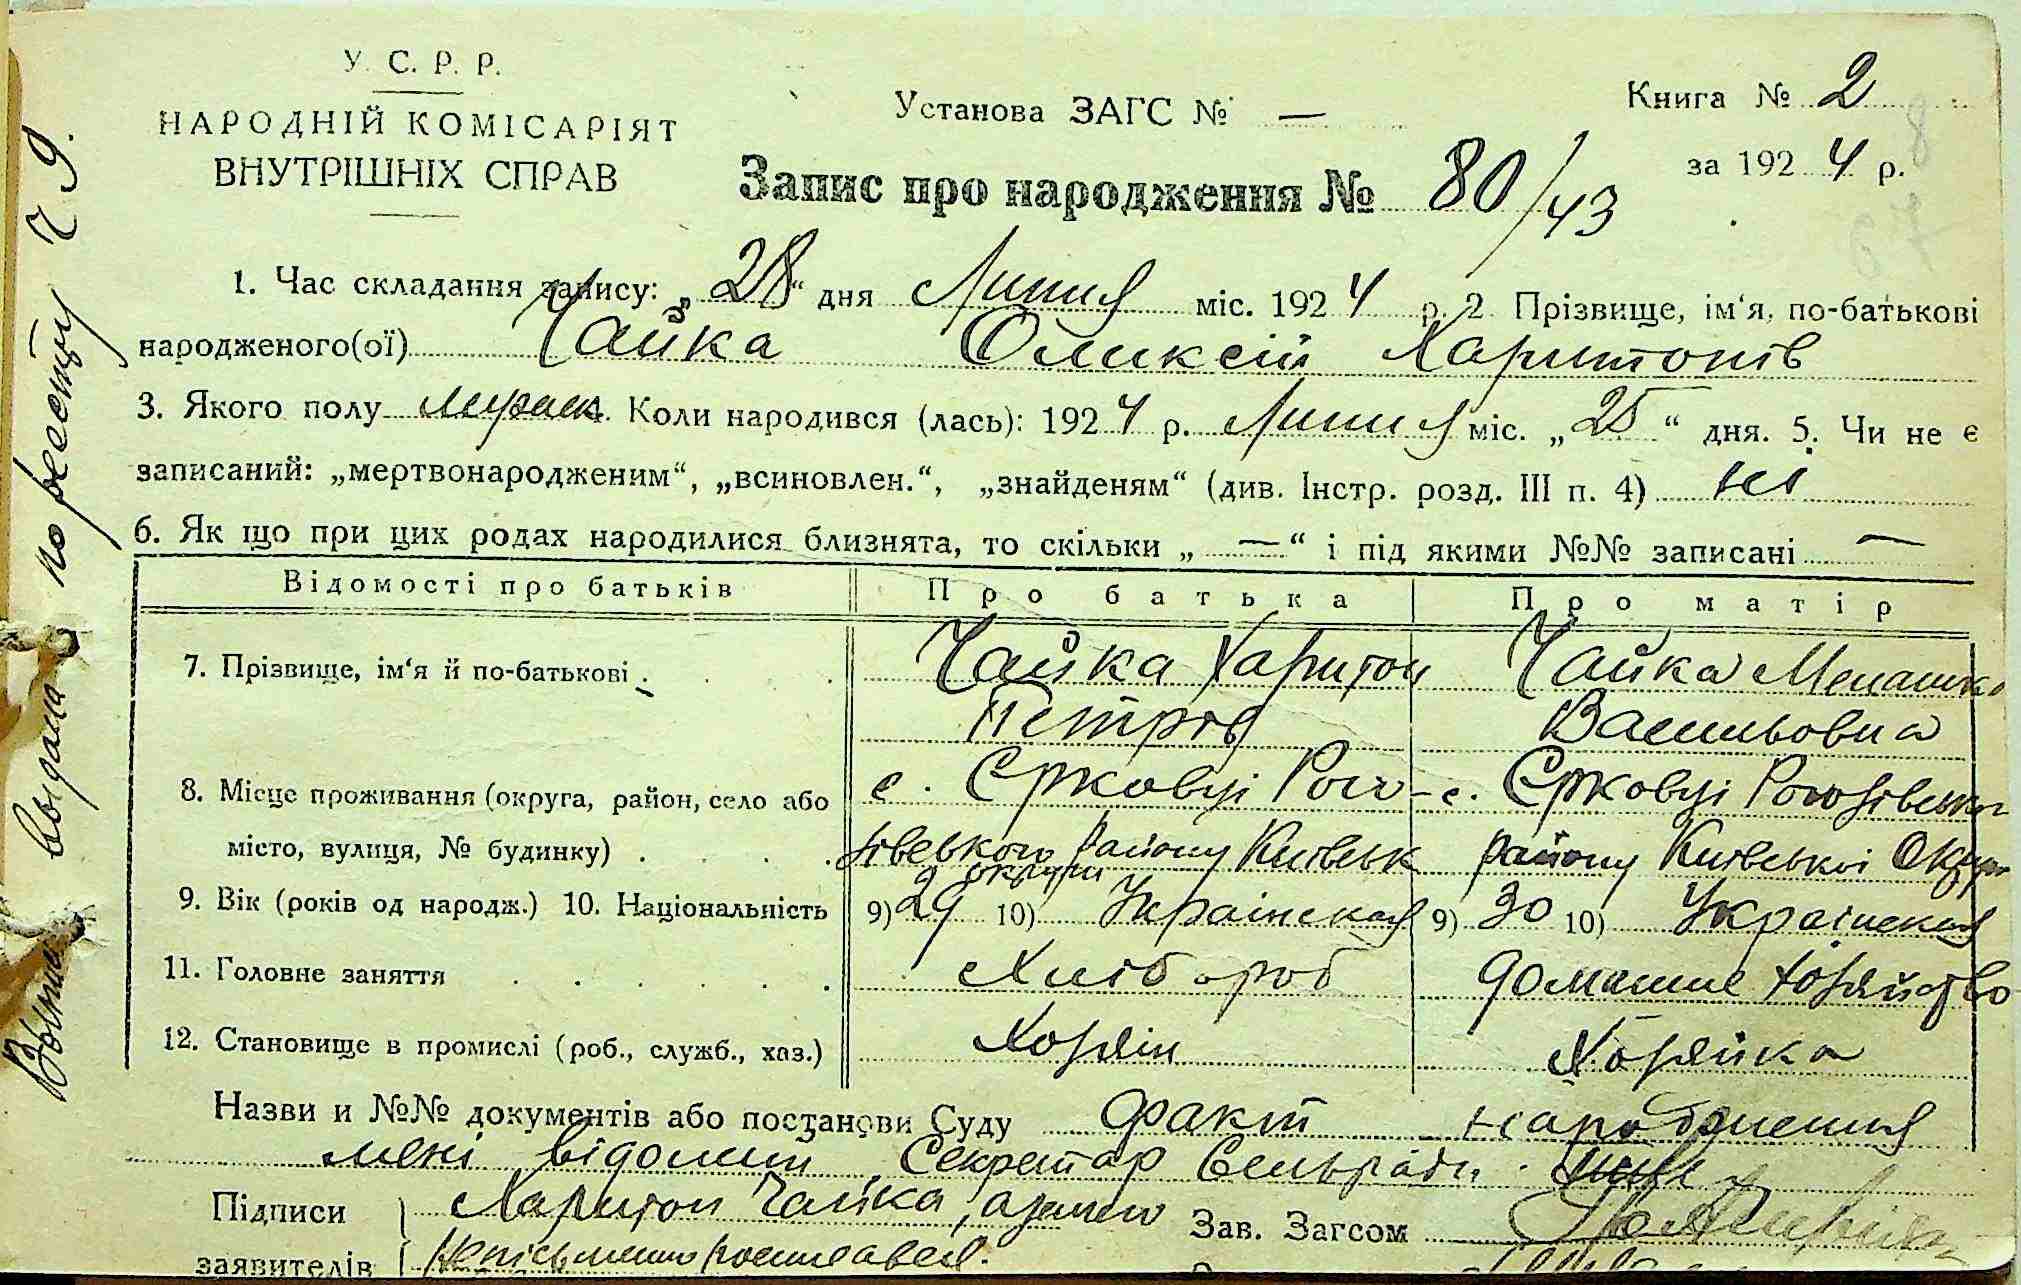 У. С. Р. Р.
НАРОДНІЙ КОМІСАРІЯТ
ВНУТРІШНІХ СПРАВ
Установа ЗАГС № —
Книга № 2
за 1924 р.
Запис про народження № 80/43
1. Час складання запису: „28“ дня Липня міс. 1924 р. 2. Прізвище, ім‘я, по-батькові
народженого(ої) Чайка Оликсій Харитонів
3. Якого полу мужеск. 4. Коли народився (лась): 1924 р. Липня міс. „25“ дня. 5. Чи не є
записаний: „мертвонародженим“, „всиновлен.“, „знайденям“ (див. Інстр. розд. III п. 4) ні
6. Як що при цих родах народилися близнята, то скільки „ — “ і під якими №№ записані —
Відомості про батьків Про батька Про матір
7. Прізвище, ім‘я й по-батькові . Чайка Харитон Чайка
Петрів Васильовна
8. Місце проживання (округа, район, село або с. Єрковці Рого- с. Єрковці Рогозівського
місто, вулиця, № будинку) . . . . зівського району Київськ району Київської Округи
округи
9. Вік (років од народж.) 10. Національність 9) 29 10) Українская 9) 30 10) Українская
11. Головне заняття . . . . . . Хлібороб домашнє хозяйство
12. Становище в промислі (роб., служб., хаз.) Хозяін Хозяйка
Назви и №№ документів або постанови Суду Факт народження
мені відомий Секретар Сельради
Підписи Харитон Чайка, а за його
заявителів неписьменно росписався.
Зав. Загсом
Выпис выдана по реестру Ч 9.